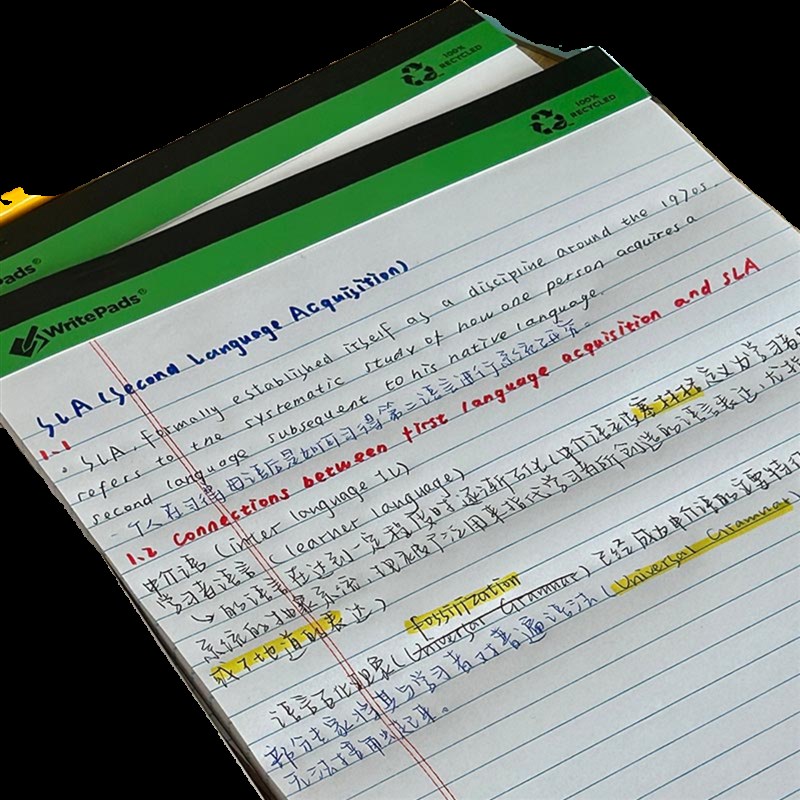 100% RECYCLED
100% RECYCLED
Pads®
WritePads®
SLA (Second Language Acquisition)
1.1
· SLA, formally established itself as a discipline around the 1970s.
refers to the systematic study of how one person acquires a
second language subsequent to his native language.
一个人在习得母语后是如何习得第二语言进行系统研究。
1.2 Connections between first language acquisition and SLA
中介语 (inter language IL)
学习者语言 (learner language)
的语言在达到一定程度时逐渐石化 (中介语 定义为学习者
系统的抽象系统,现在被广泛用来指代学习者所创造的语言表达,尤指
或不地道的表达)
fossilization
语言石化现象 (Universal Grammar) 已经成为中介语的主要特征
部分专家将其与学习者对普遍语法 (Universal Grammar)
无法 起来。